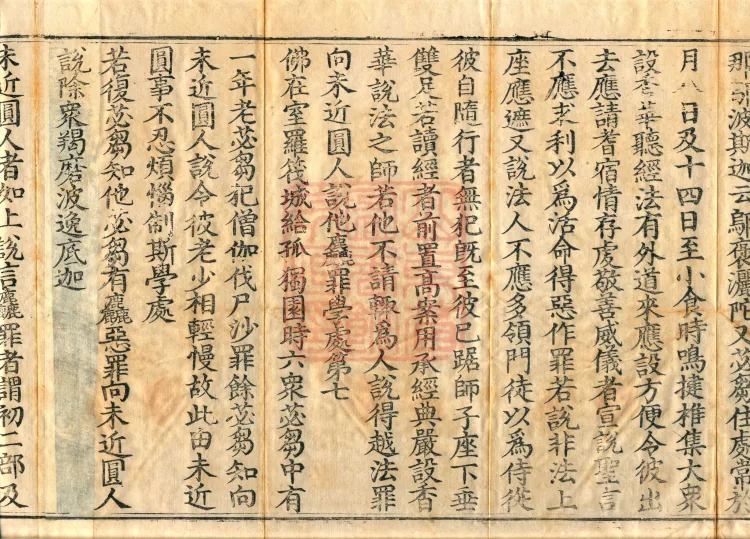 波斯迦云鄔褒灑陀又苾芻住處常於
月八日及十四日至小食時鳴揵椎集大衆
設香華聽經法有外道來應設方便令彼出
去應請耆宿情存處敬善威儀者宣説聖言
不應求利以爲活命得惡作罪若説非法上
座應遮又説法人不應多領門徒以爲侍從
彼自隨行者無犯旣至彼已踞師子座下垂
雙足若讀經者前置高案用承經典嚴設香
華説法之師若他不請輙爲人説得越法罪
向未近圓人說他麤罪學處第七
佛在室羅筏城給孤獨園時六衆苾芻中有
一年老苾芻犯僧伽伐尸沙罪餘苾芻知向
未近圓人説令彼老少相輕慢故此由未近
圓事不忍煩惱制斯學處
若復苾芻知他苾芻有麤惡罪向未近圓人
說除衆羯磨波逸底迦
未近圓人者如上說言麤罪者謂初二部及